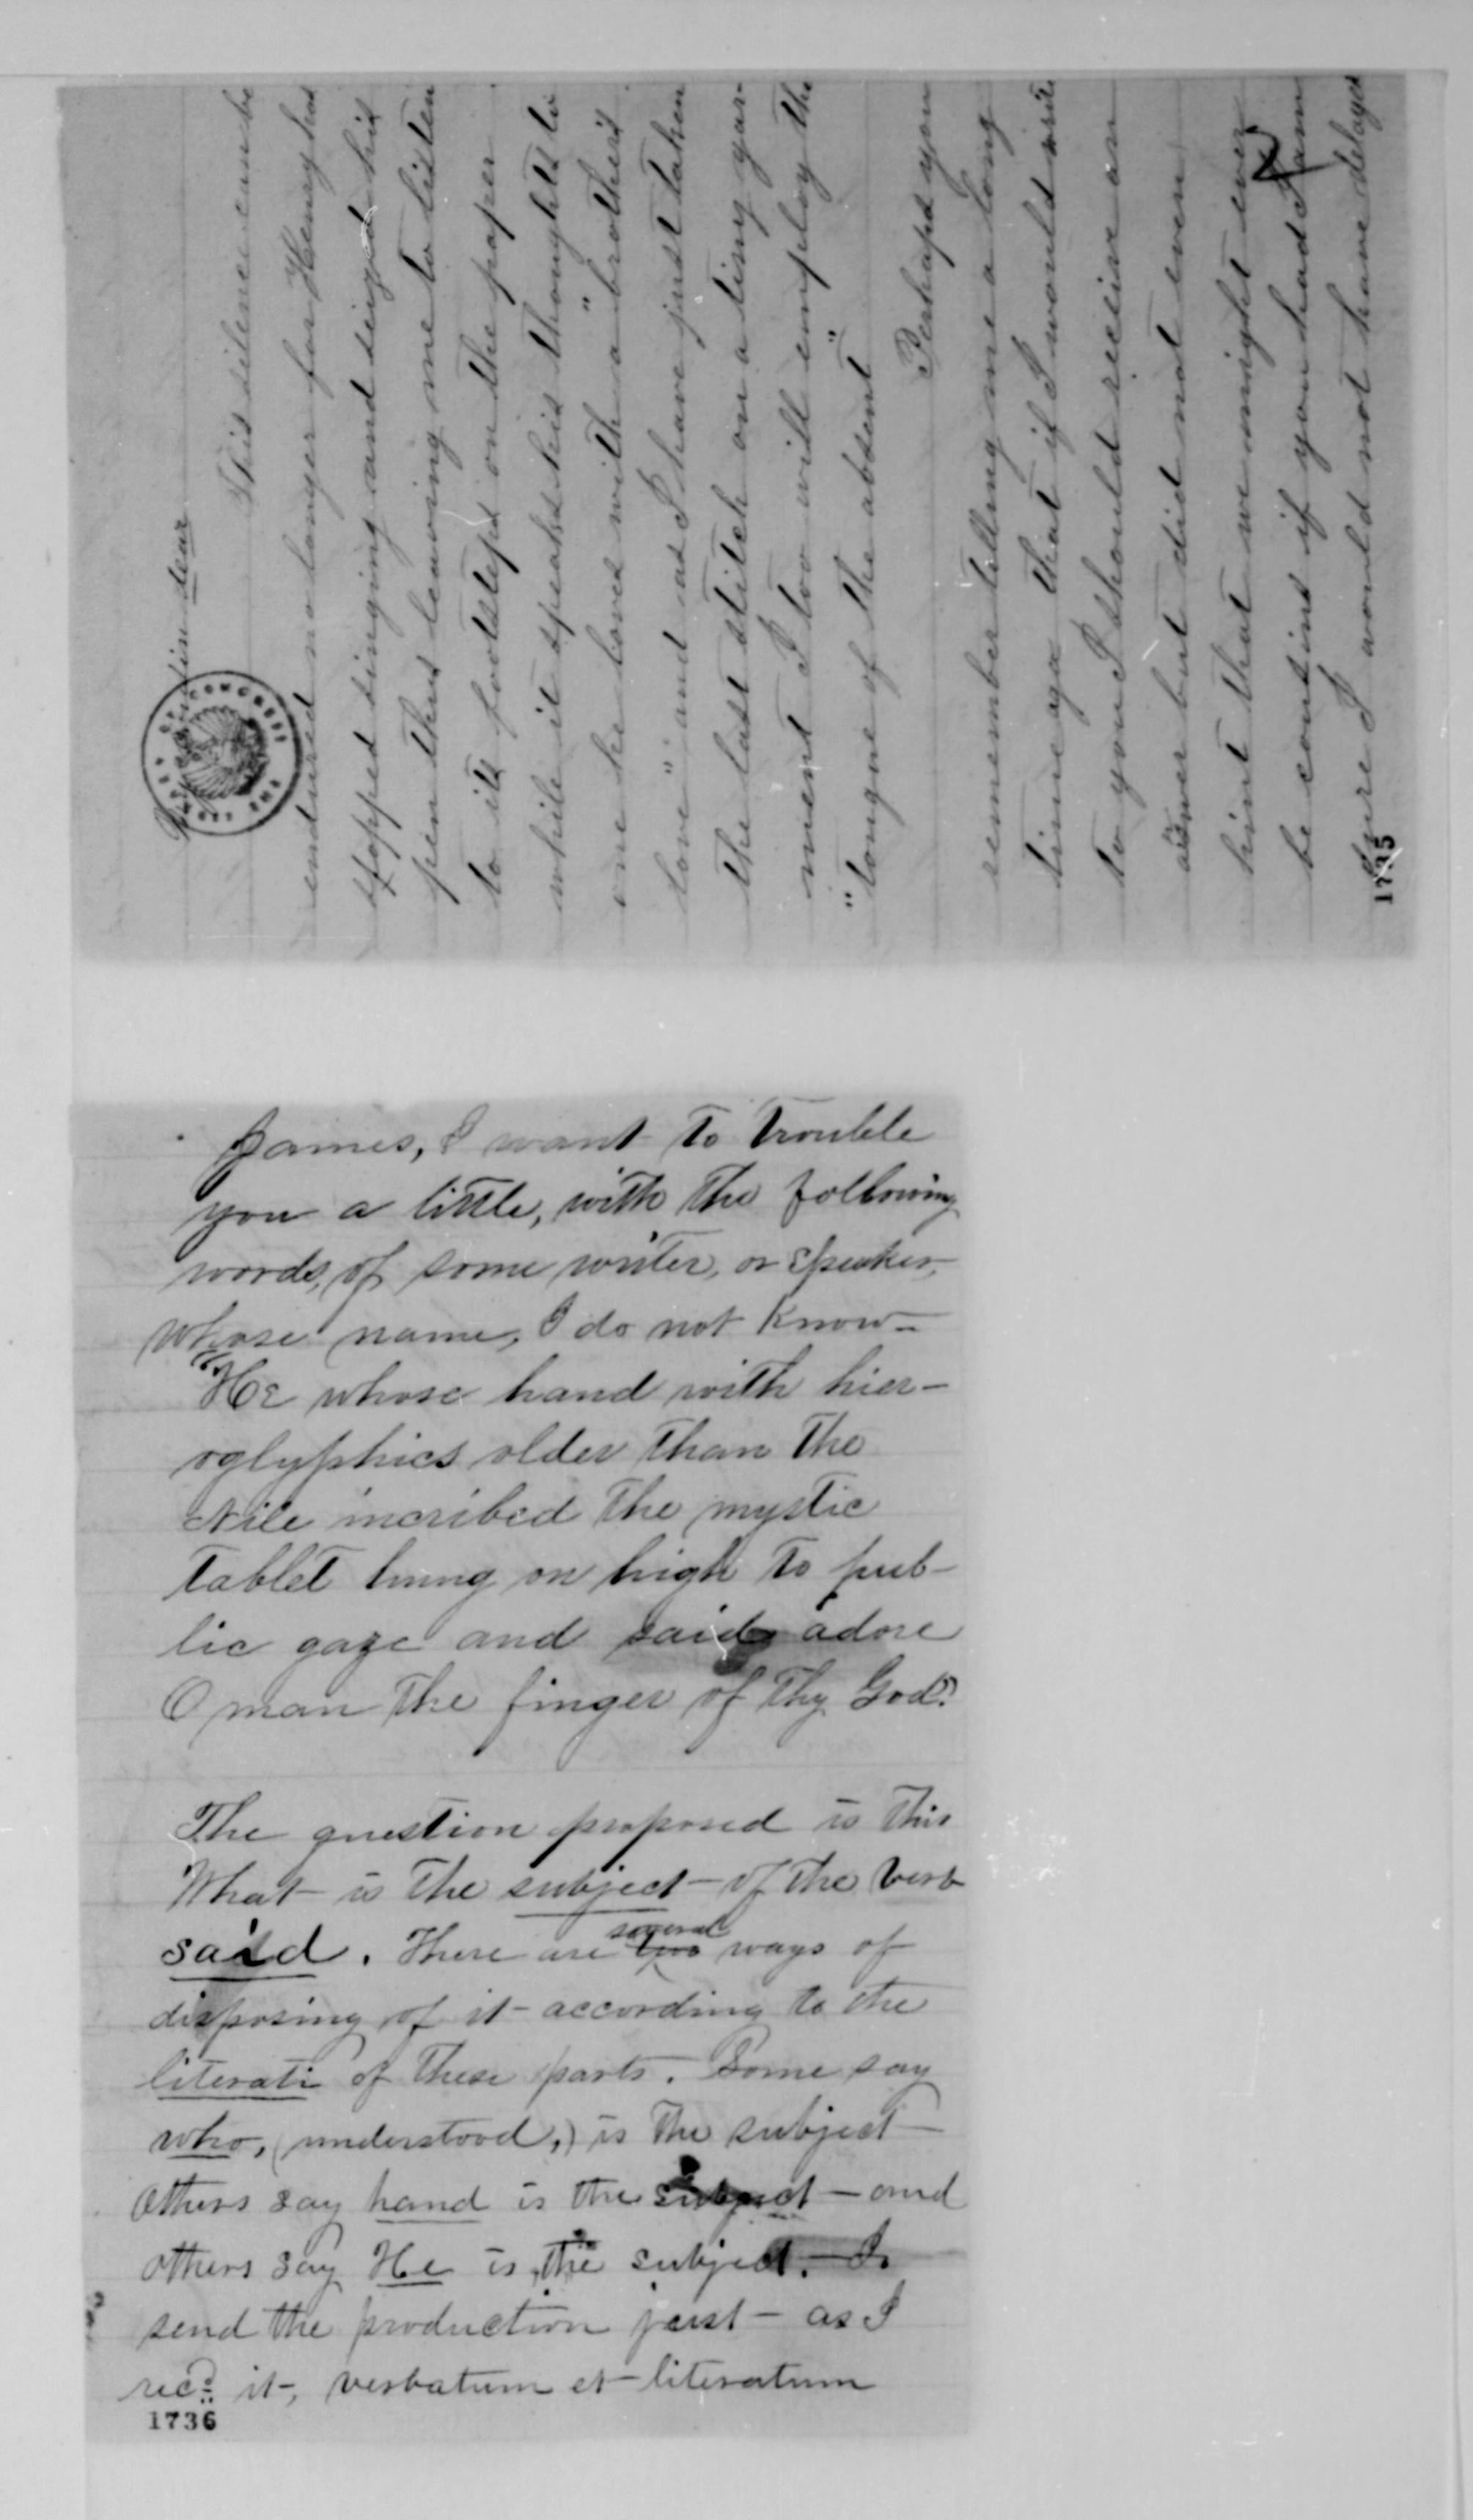 dear
This silence can be
endured no longer for Henry has
stopped singing and seized his
pen thus leaving me to listen
to its footsteps on the paper
while it speaks his thoughts to
one he loves with "a brother's
love" and as I have just taken
the last stitch on a tiny gar-
ment I too will employ the
"tongue of the absent"
Perhaps you
remember telling me a long
time ago that if I would write
to you I should receive an
answer but did not even
hint that we might even
be cousins if you had I am
sure I would not have delayed
1735
James, I want to trouble
you a little, with the following
words, of some writer, or speaker,
whose name, I do not know—
"He whose hand with hier-
oglyphics older than the
Nile incribed the mystic
tablet hung on high to pub-
lic gaze and said adore
O man the finger of thy God."
The question proposed is this
What is the subject of the verb
said. There are several two ways of
disposing of it according to the
literati of these parts. Some say
who, (understood,) is the subject
others say hand is the subject — and
others say He is the subject. I
send the production just as I
recd it, verbatum et literatum
1736